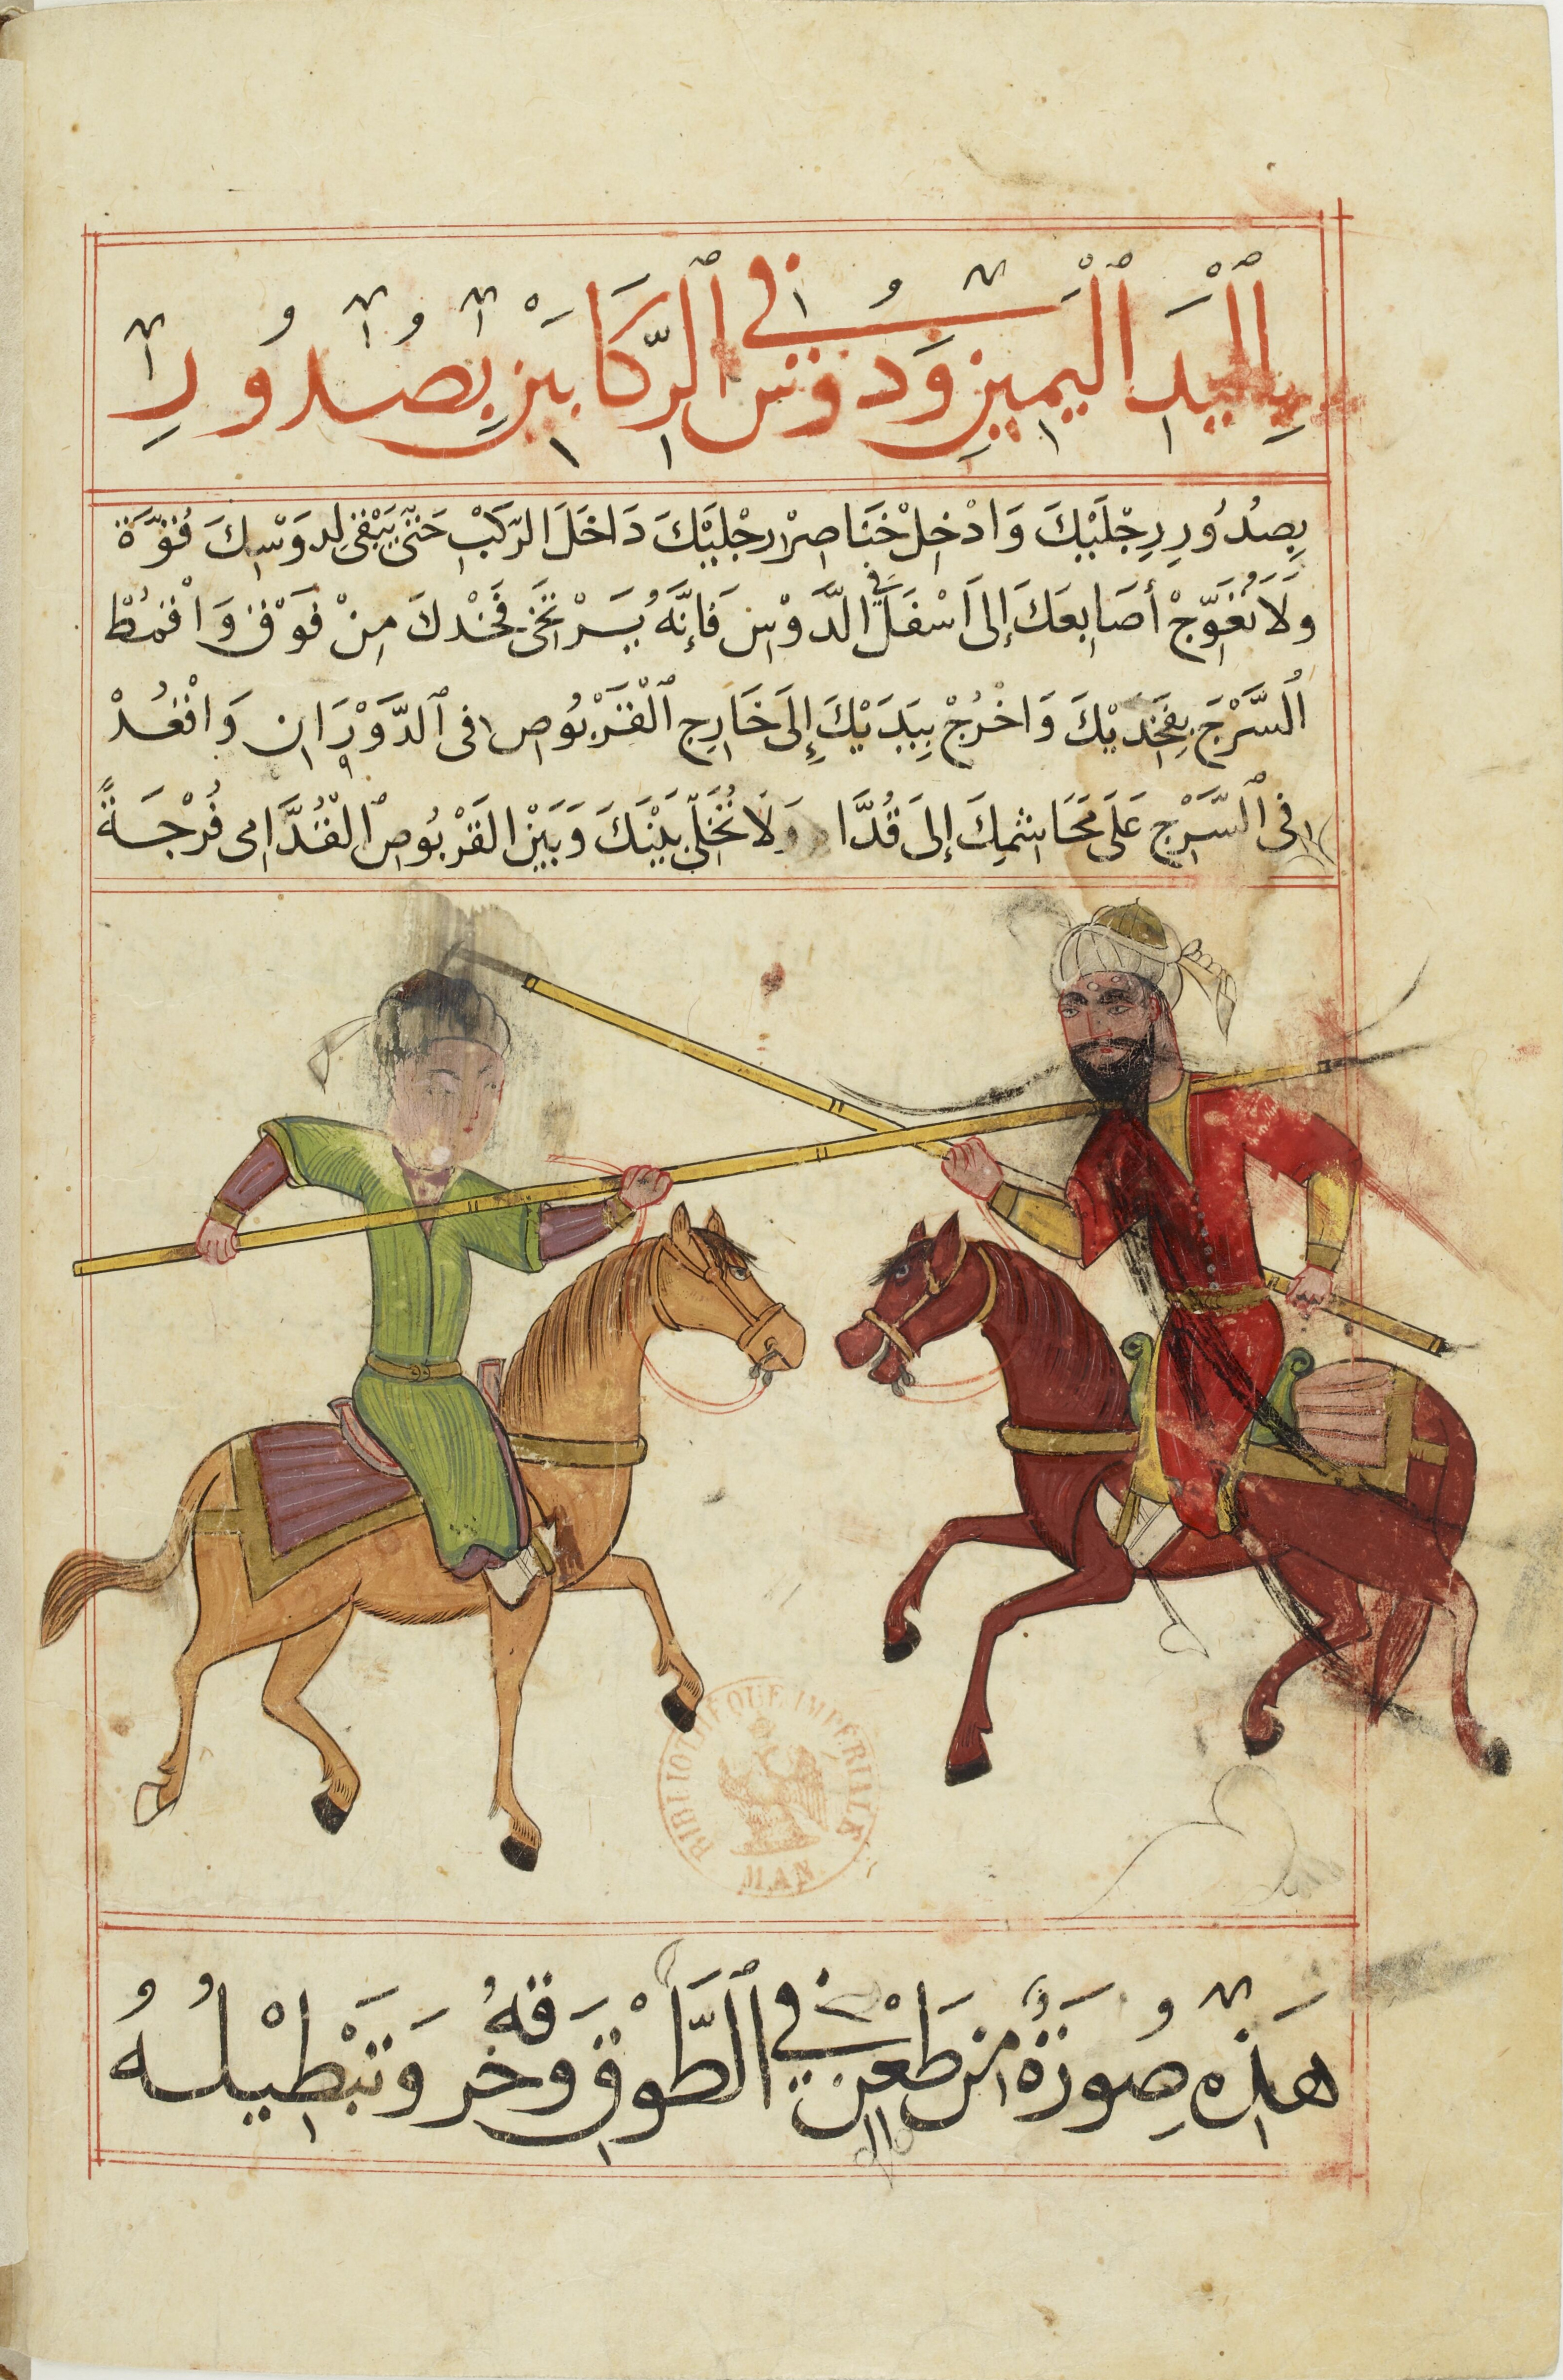 بِالْيَدِ الْيَمِينِ وَدوس في الرّكَابَيْنِ بِصُدُورِ
بِصُدُورِ رِجْلَيْكَ وَادْخِلْ خَنَاصِرْ رِجْلَيْكَ دَاخَلَ الرّكَبْ حَتَّى يَبْقى لِدَوْسِكَ قُوَّة
وَلَا تُعَوِّجْ أصَابِعَكَ إلى اَسْفَل في الدَّوْسِ فَإنَّهُ يَسْرَتخَي فَخْدكَ مِنْ فَوْق وَاقْمُطْ
اُلسَّرْجَ بِفَخِدَيْكَ وَاخْرُجْ بِيَدَيْكَ إِلَى خَارِجِ الْقَرْبُوصِ في الدَّوْرَانِ وَاقْعُدْ
في السَّرْجِ عَلَى مَحَاشمِكَ إلىَ قُدَّا وَلَا تُخَلّي بَيْنَكَ وَبَيْنَ القَرْبُوصِ الْقُدَّامِى فُرْجَةً
BIBLIOTHEQUE IMPERIALE
MAN
هَذِهِ صُورَةُ مَن طَعَن في الطَّوْقِ وخرقَهُ وَتَبْطِيلُهُ